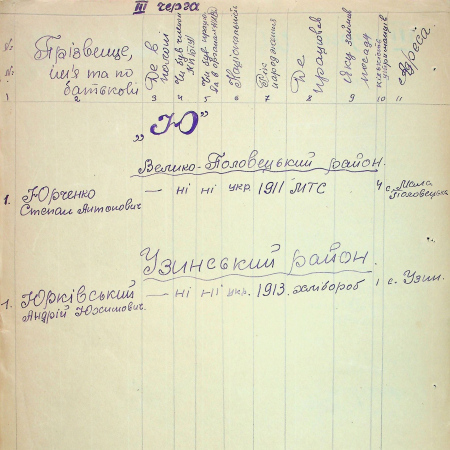 III черга
№ №
Прізвище, ім'я та по батькові
Де в
Чи був членом
Чи був
Національність
Рік народження
Де працював
Яку займав посаду
кількість
Адреса
1 2 3 4 5 6 7 8 9 10 11
„Ю"
Велико-Половецький район.
1. Юрченко — ні ні укр. 1911 МТС 4 с. Мала
Степан Антонович Половецька
Узинський район.
1. Юрківський — ні ні укр. 1913. хлібороб 1 с. Узин.
Андрій Юхимович.